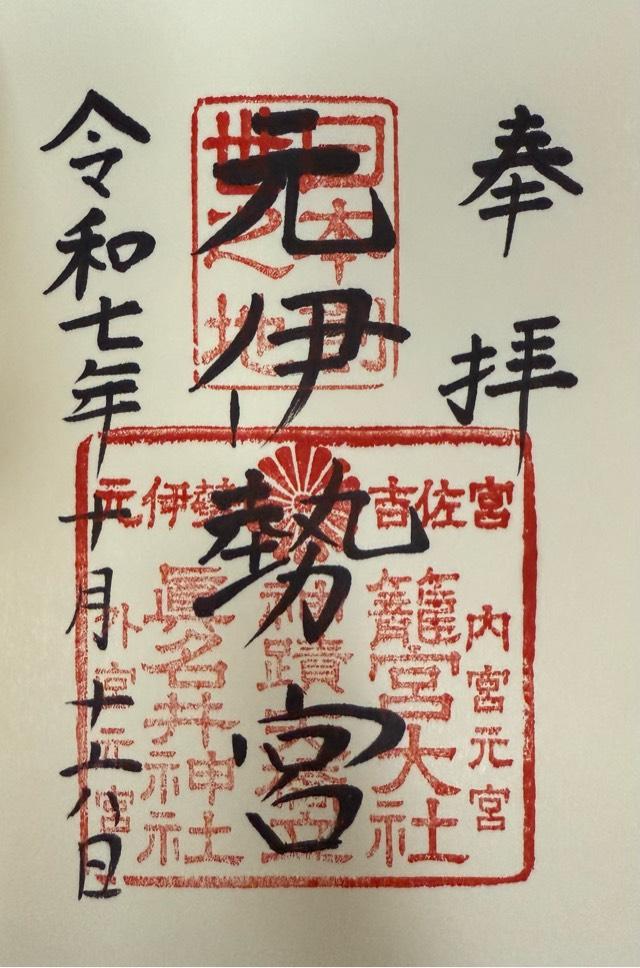 奉拝
日本創
世之地
元伊勢宮
元伊勢 吉佐宮
内宮元宮
籠宮大社
眞名井神社
外宮元宮
令和七年十月十八日